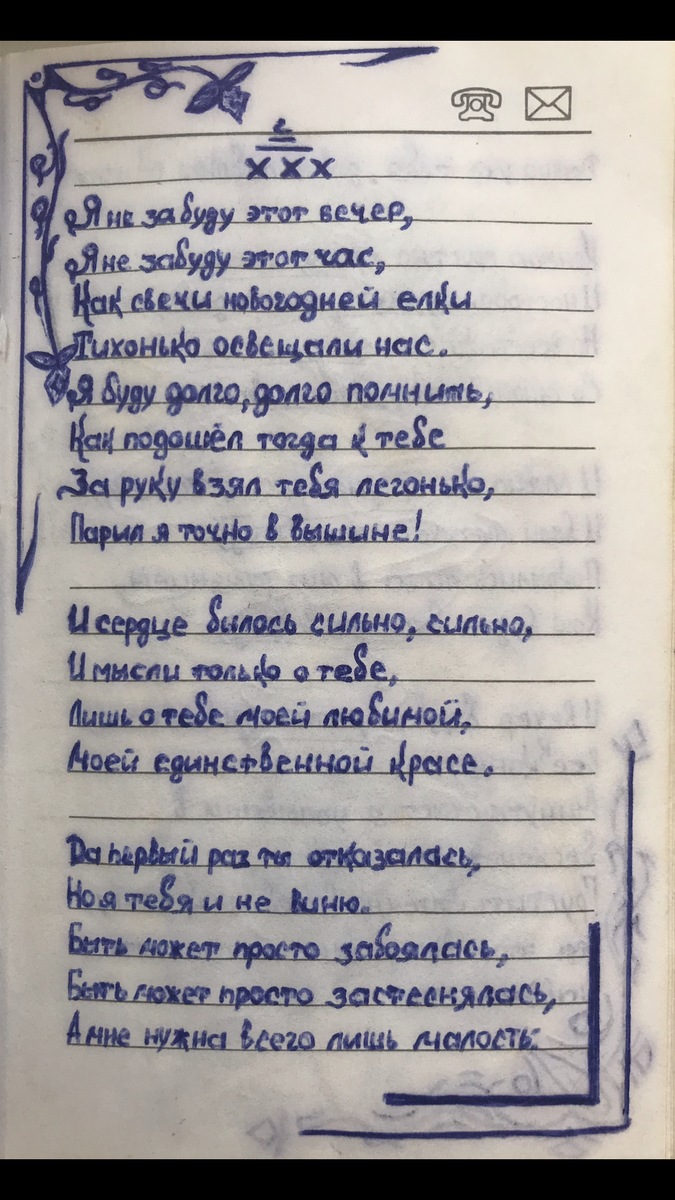 x x x
Я не забуду этот вечер,
Я не забуду этот час,
Как свечи новогодней елки
Тихонько освещали нас.
Я буду долго, долго помнить,
Как подошёл тогда к тебе
За руку взял тебя легонько,
Парил я точно в вышине!
И сердце билось сильно, сильно,
И мысли только о тебе,
Лишь о тебе моей любимой,
Моей единственной красе.
Да первый раз ты отказалась,
Но я тебя и не виню.
Быть может просто забоялась,
Быть может просто застеснялась,
А мне нужна всего лишь малость: